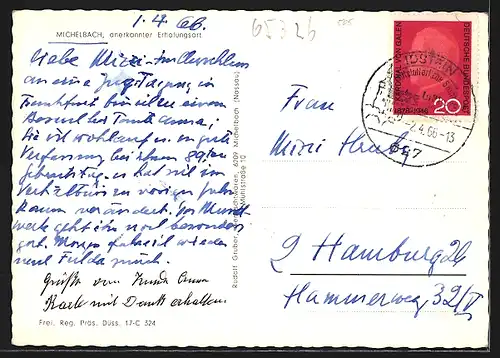 1.4.66.
65326
MICHELBACH, anerkannter Erholungsort
Liebe Mieze. Im Anschluss
an eine Jagdtagung in
Frankfurt bin ich zu einem
Besuch bei Tante Anna.
Sie ist wohlauf u. in guter
Verfassung bei ihrem 89.
Geburtstag. es hat sich im
Verhältnis zu vorigen Jahr
kaum verändert. Ihr Mund-
werk geht ihr noch besonders
gut. Morgen fahre ich wieder
nach Fulda zurück.
Grüße von Tante Anna
Karte mit Dank erhalten.
Frei. Reg. Präs. Düss. 17-C 324
Rudolf Gruber, 6209 Michelbach (Nassau)
Mühlstraße 10
KARDINAL VON GALEN
1878-1946
DEUTSCHE BUNDESPOST
20
IDSTEIN
-2.4.66-13
627
Frau
2 Hamburg 26
Hammerweg 32/II